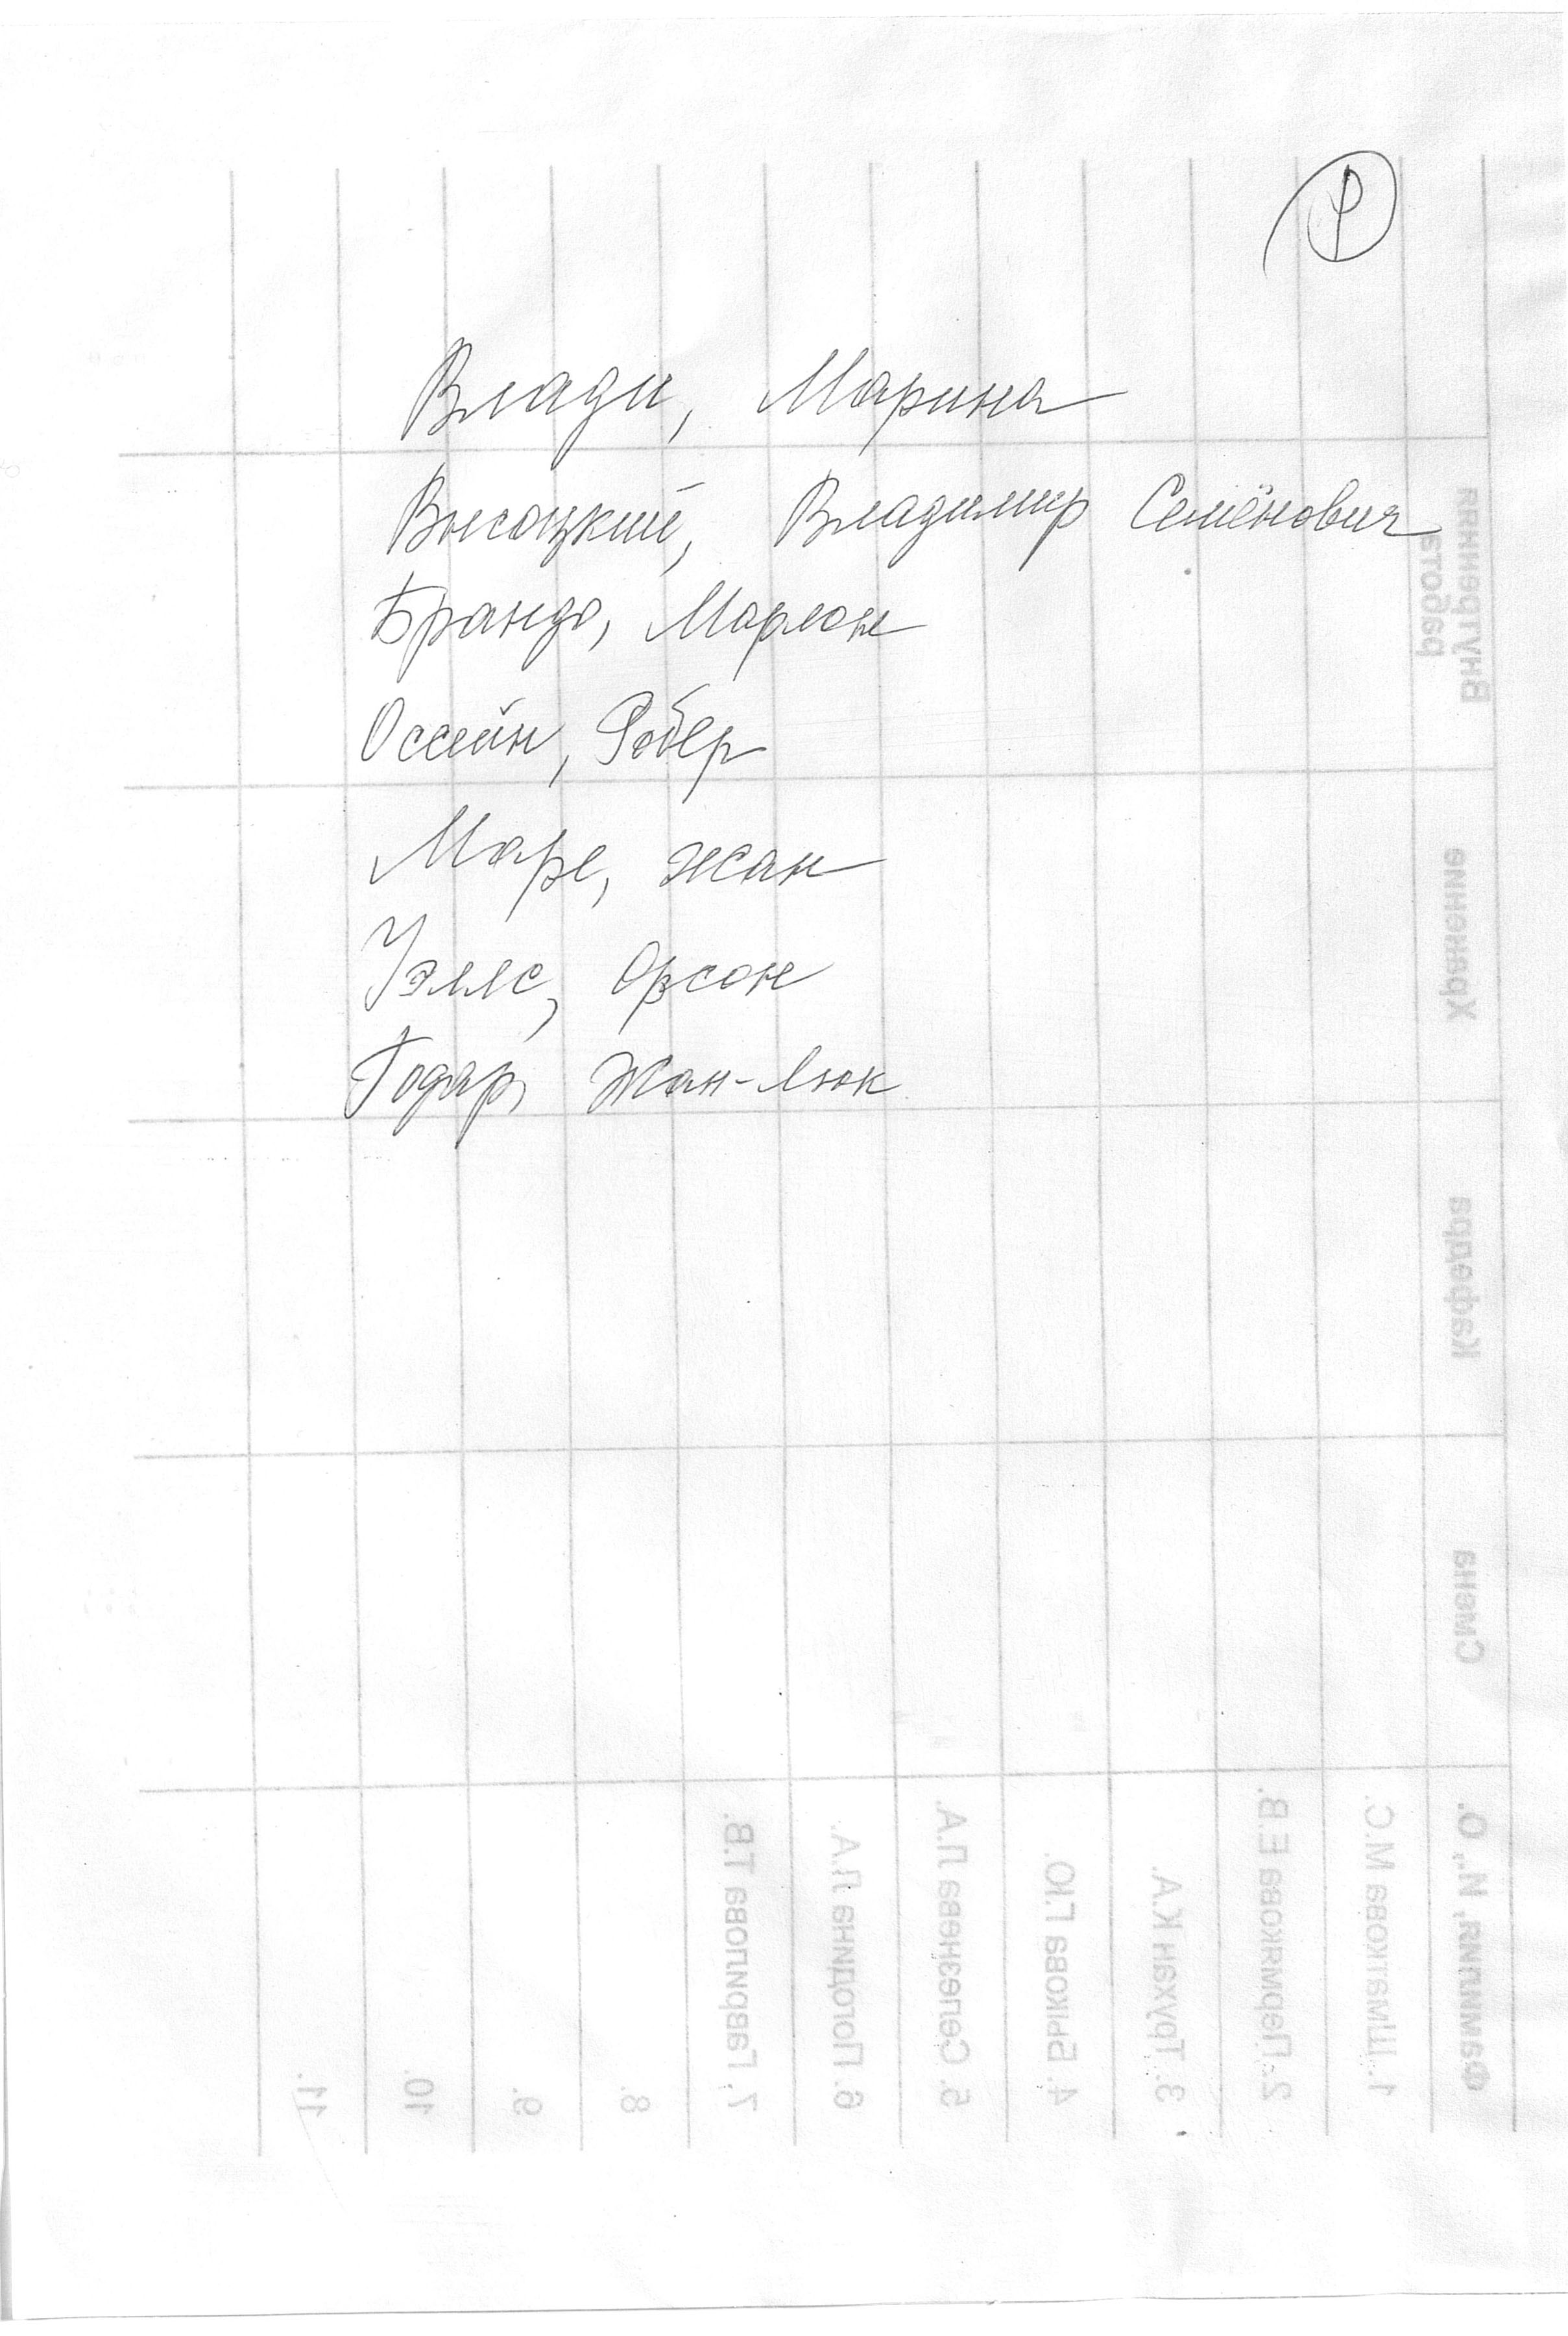 Ф
Влади, Марина
Высоцкий, Владимир Семёнович
Брандо, Марлон
Оссейн, Робер
Маре, Жан
Уэллс, Орсон
Годар, Жан-Люк
Фамилия, И., О.
Смена
Кафедра
Хранение
Внутренняя
работа
1. Шматкова М.С.
2. Пермякова Е.В.
3. Трухан К.А.
4. Быкова Г.Ю.
5. Селезнева Л.А.
6. Погодина Л.А.
7. Гаврилова Т.В.
8.
9.
10.
11.